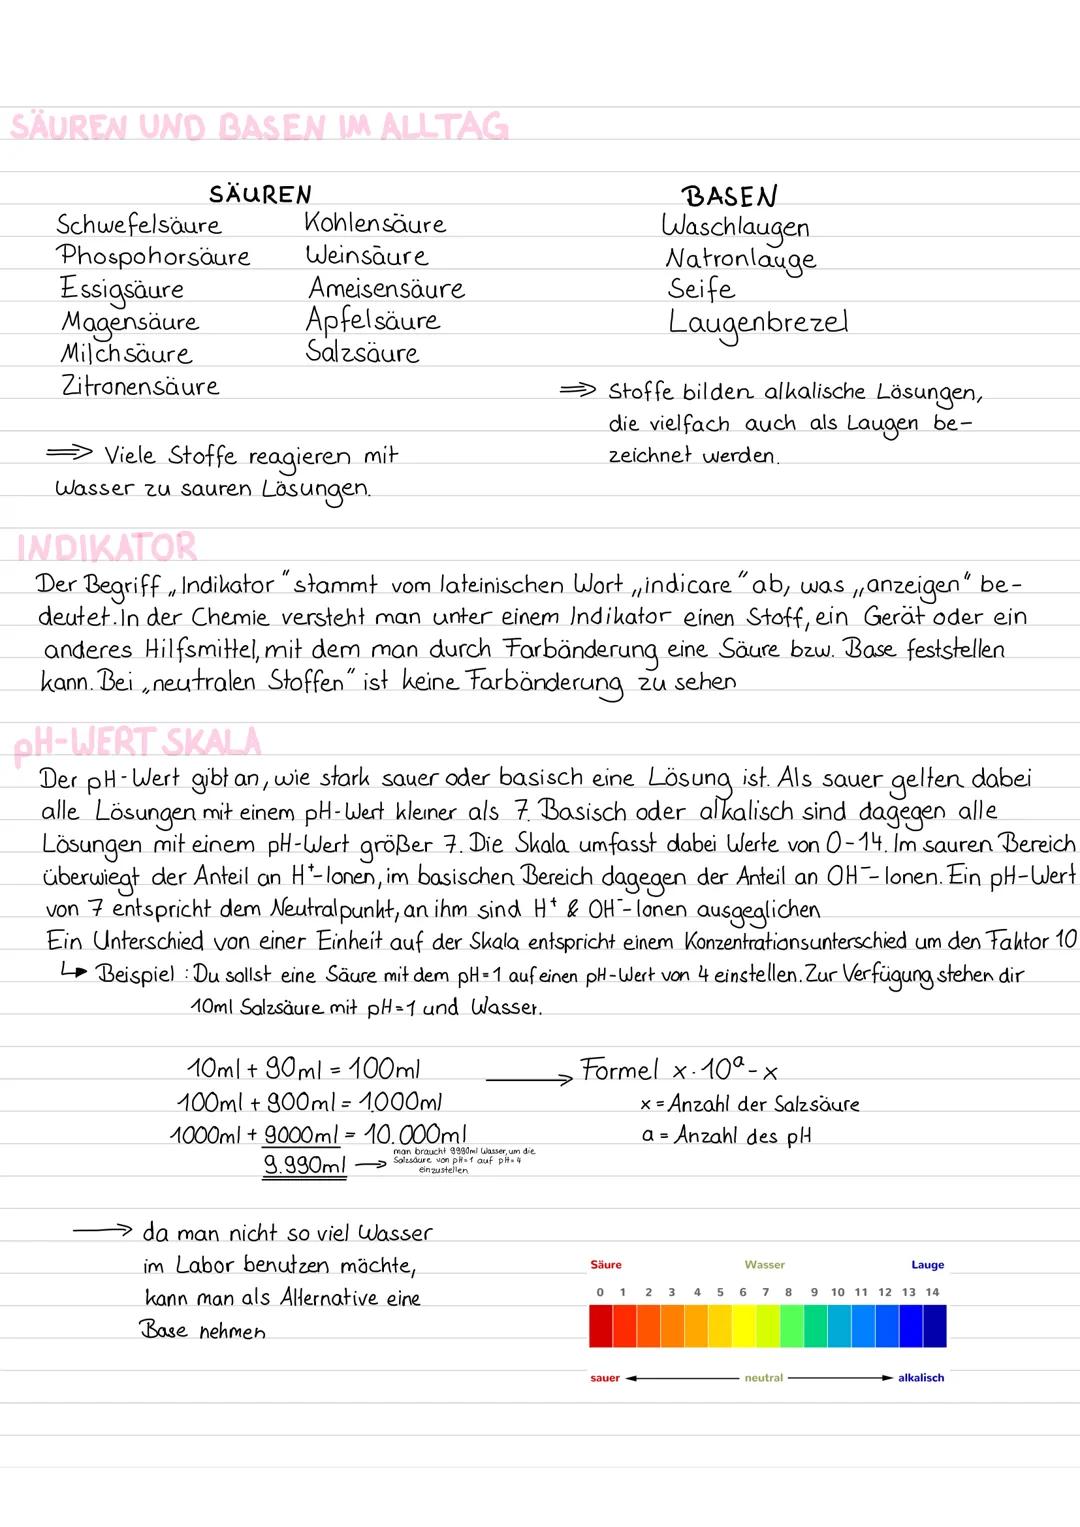 SÄUREN UND BASEN IM ALLTAG
SÄUREN
Schwefelsäure Kohlensäure
Phospohorsäure Weinsäure
Essigsäure Ameisensäure
Magensäure Apfelsäure
Milchsäure Salzsäure
Zitronensäure
⇒ Viele Stoffe reagieren mit
Wasser zu sauren Lösungen.
BASEN
Waschlaugen
Natronlauge
Seife
Laugenbrezel
⇒ Stoffe bilden alkalische Lösungen,
die vielfach auch als Laugen be-
zeichnet werden.
INDIKATOR
Der Begriff „Indikator" stammt vom lateinischen Wort „indicare" ab, was „anzeigen" be-
deutet. In der Chemie versteht man unter einem Indikator einen Stoff, ein Gerät oder ein
anderes Hilfsmittel, mit dem man durch Farbänderung eine Säure bzw. Base feststellen
kann. Bei „neutralen Stoffen" ist keine Farbänderung zu sehen
pH-WERT SKALA
Der pH-Wert gibt an, wie stark sauer oder basisch eine Lösung ist. Als sauer gelten dabei
alle Lösungen mit einem pH-Wert kleiner als 7. Basisch oder alkalisch sind dagegen alle
Lösungen mit einem pH-Wert größer 7. Die Skala umfasst dabei Werte von 0-14. Im sauren Bereich
überwiegt der Anteil an H⁺-Ionen, im basischen Bereich dagegen der Anteil an OH⁻-Ionen. Ein pH-Wert
von 7 entspricht dem Neutralpunkt, an ihm sind H⁺ & OH⁻-Ionen ausgeglichen
Ein Unterschied von einer Einheit auf der Skala entspricht einem Konzentrationsunterschied um den Faktor 10
↳ Beispiel : Du sollst eine Säure mit dem pH=1 auf einen pH-Wert von 4 einstellen. Zur Verfügung stehen dir
10ml Salzsäure mit pH=1 und Wasser.
10ml + 90ml = 100ml
100ml + 900ml = 1000ml
1000ml + 9000ml = 10.000ml
9.990ml → man braucht 9990ml Wasser, um die
Salzsäure von pH=1 auf pH=4
einzustellen
→ Formel x·10ᵃ-x
x = Anzahl der Salzsäure
a = Anzahl des pH
→ da man nicht so viel Wasser
im Labor benutzen möchte,
kann man als Alternative eine
Base nehmen
Säure Wasser Lauge
0 1 2 3 4 5 6 7 8 9 10 11 12 13 14
sauer neutral alkalisch